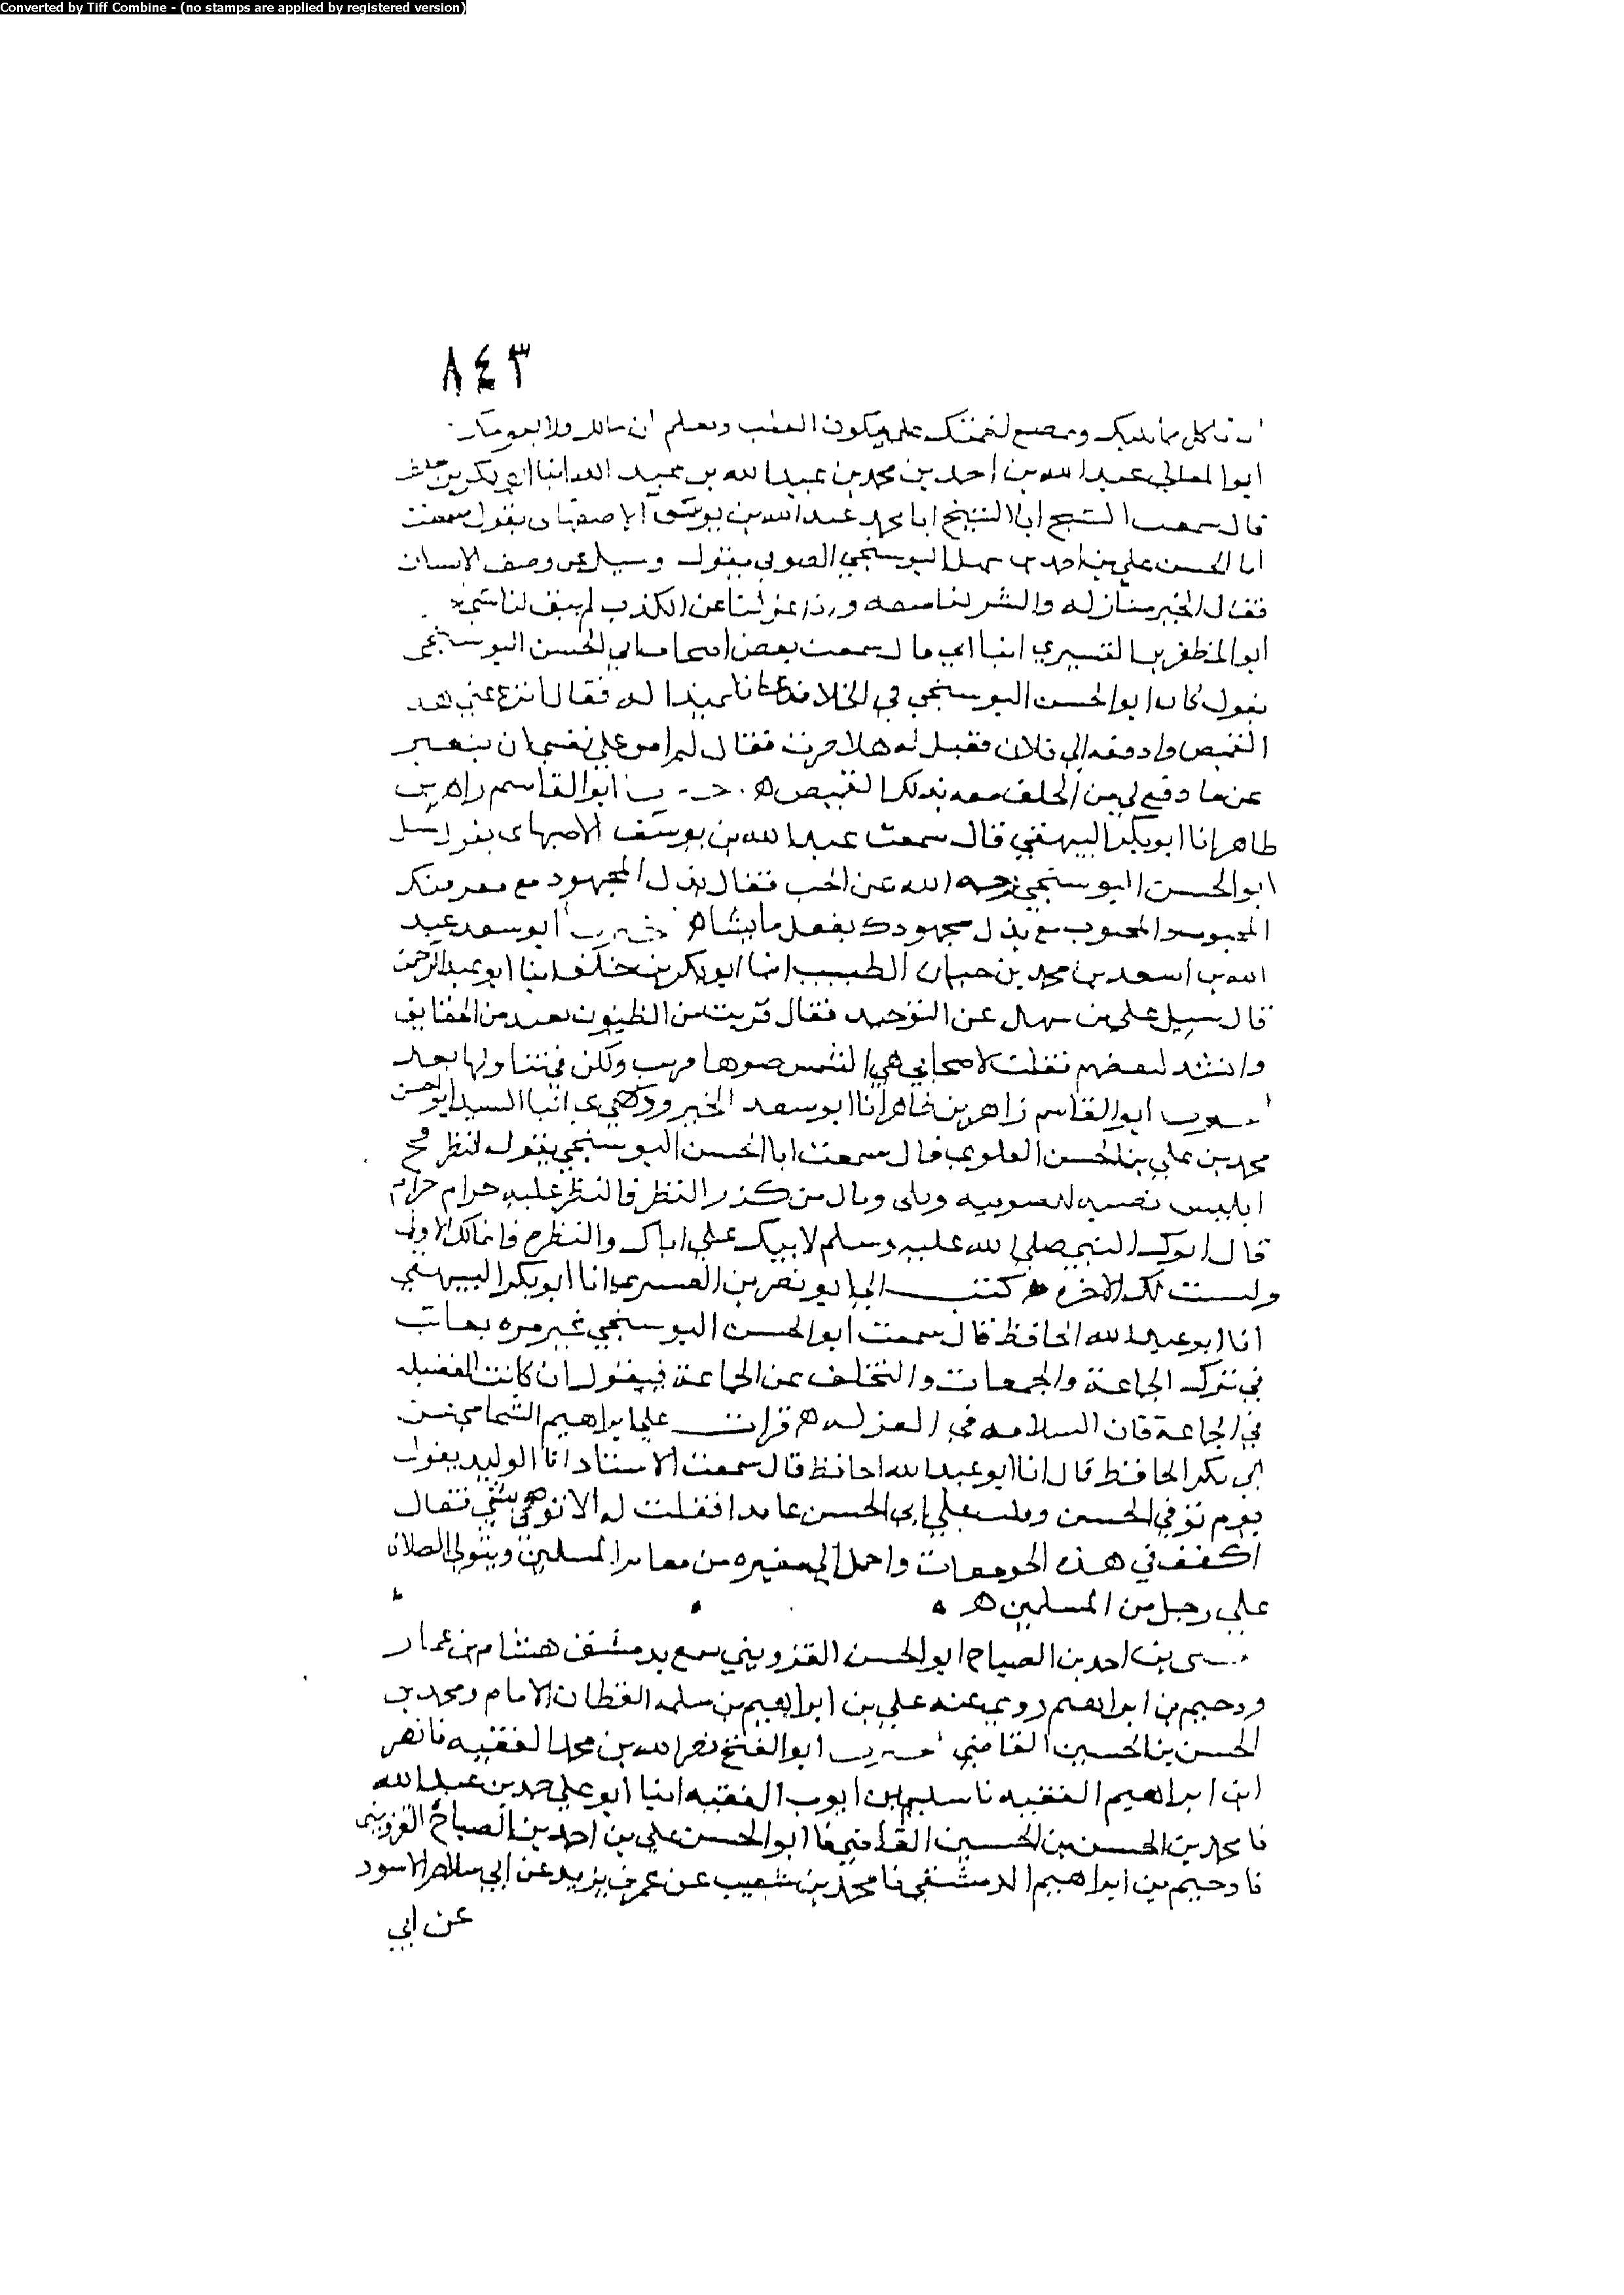 Converted by Tiff Combine - (no stamps are applied by registered version)
٨٤٣
ان تاكل مما يليك وتمضع لقمتك ويكون وتعلم ان
ابوا المعالي عبد الله بن احمد بن محمد بن عبيد الله بن عبيد الله انبا ابو بكر بن خلف
قال سمعت الشيخ ابا محمد عبد الله بن يوسف الاصفهاني يقول سمعت
ابا الحسن علي بن احمد بن سهل البوسنجي الصوفي يقول وسيل عن وصف الانسان
فقال الخير منازله والشر لنا صفه واذا عزلنا عن الكذب لم يبق لنا شيء
ابو المظفر بن القشيري انبا ابي قال سمعت بعض اصحابنا ابي الحسن البوسنجي
يقول كان ابو الحسن البوسنجي في الخلا فدعا تلميذا له فقال انزع عني هذا
القميص وادفعه الي فلان فقيل له هلا صبرت فقال لم امن علي نفسي ان يتغير
عن ما وقع لي من الخلف معه بذلك القميص ه ابو القاسم زاهر بن
طاهر انا ابو بكر البيهقي قال سمعت عبد الله بن يوسف الاصبهاني يقول سيل
ابو الحسن البوسنجي رحمه الله عن الحب فقال بذل المجهود مع معرفتك
المحبوب والمحبوب مع بذل مجهودك يفعل ما يشاه ابو سعد عبد
الله بن اسعد بن محمد بن حيان الطبيب انبا ابو بكر بن خلف انبا ابو عبد الرحمن
قال سيل علي بن سهل عن التوحيد فقال قريب من الظنون بعيد من الحقايق
وانشد لبعضهم فقلت لاصحابي هي الشمس ضوها قريب ولكن في تناولها بعد
ابو القاسم زاهر بن طاهر انا ابو سعد الجنزرودي انبا السيد ابو الحسن
محمد بن علي بن الحسين العلوي قال سمعت ابا الحسن البوسنجي يقول النظر فخ
ابليس نصبه للصوفيه وبلى وقال من كذر النظر فالنظر عليه حرام حرام
قال النبي صلي الله عليه وسلم لابيك علي اياك والنظره فانما لك الاولي
وليست لك الاخره ه كتب الي ابو نصر بن القشيري انا ابو بكر البيهقي
انا ابو عبد الله الحافظ قال سمعت ابو الحسن البوسنجي غير مره يعاتب
في ترك الجماعة والجمعات والتخلف عن الجماعة فيقول ان كانت الفضيله
في الجماعة فان السلامه في العزله ه قرات علي ابراهيم الشحامي عن
ابي بكر الحافظ قال انا ابو عبد الله الحافظ قال سمعت الاستاد ابا الوليد يقول
يوم توفي الحسن دخلت علي ابي الحسن عايدا فقلت له الا توصي بشي فقال
اكفف في هذه واحمل الي مقبره من مقابر المسلمين ويتولي الصلاه
علي رجل من المسلمين ه
علي بن احمد بن الصباح ابو الحسن القزويني سمع بدمشق هشام بن عمار
ودحيم بن ابراهيم روي عنه علي بن ابراهيم بن سلمه القطان الامام ومحمد بن
الحسن بن الحسين القاضي ابو الفتح نصر الله بن محمد الفقيه نا نصر
ابن ابراهيم الفقيه نا سليم بن ايوب الفقيه انبا ابو علي حمد بن عبد الله
نا محمد بن الحسن بن الحسين القاضي نا ابو الحسن علي بن احمد بن الصباح القزويني
نا دحيم بن ابراهيم الدمشقي نا محمد بن شعيب عن عمر بن يزيد عن ابي سلام الاسود
عن ابي